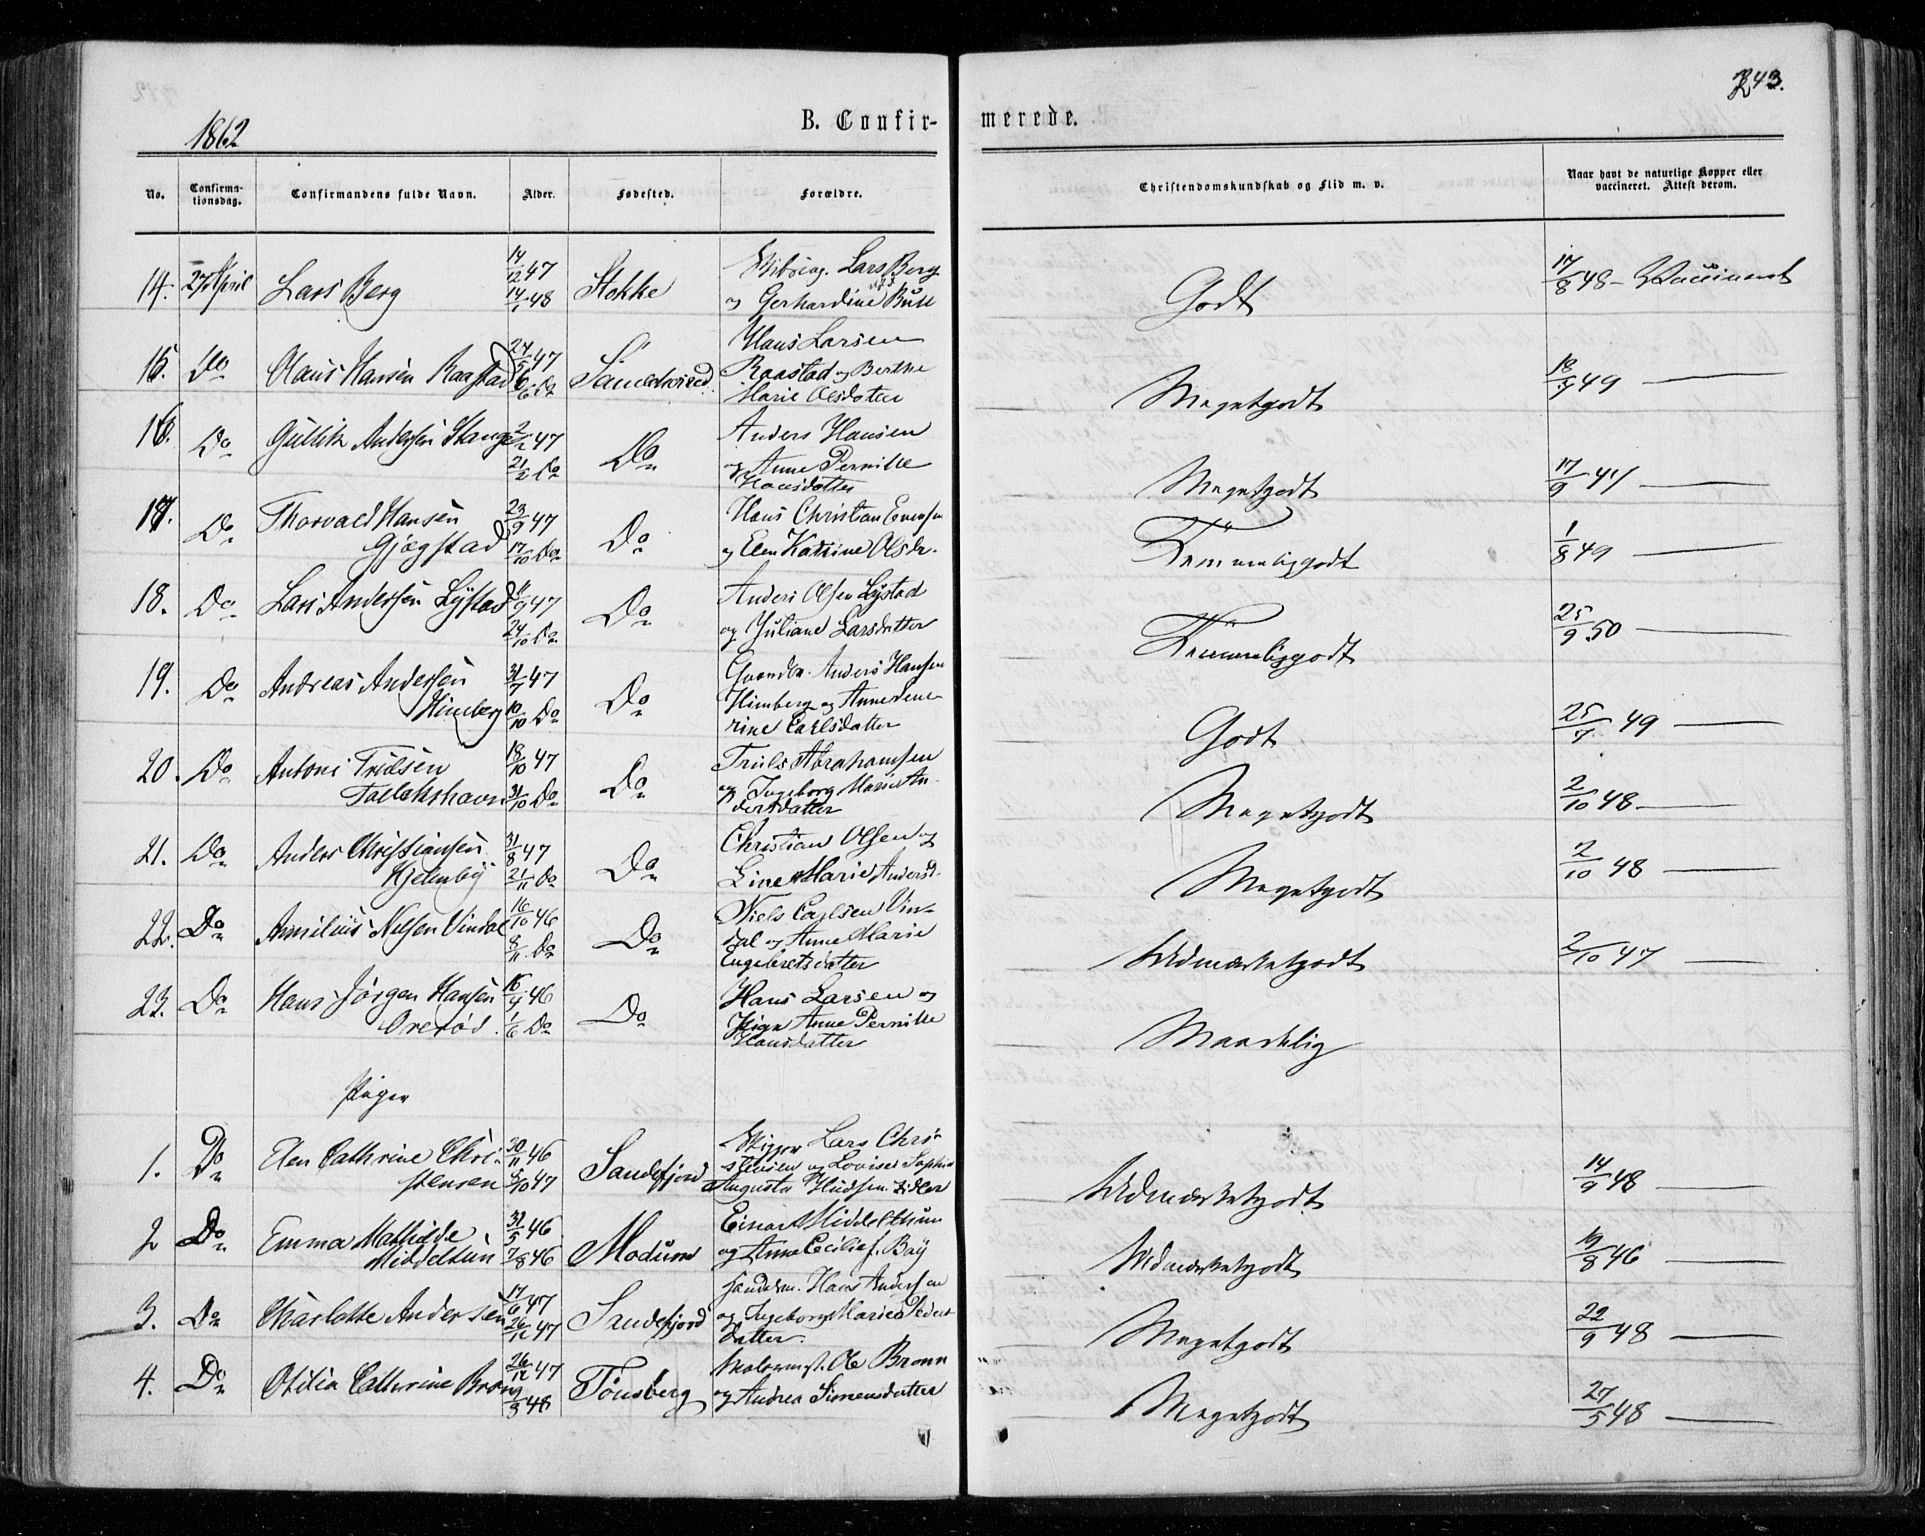 243.
1862
B. Confir- merede.
No. Confirma-tionsdag. Confirmandens fulde Navn. Alder. Fødested. Forældre. Christendomskundskab og Flid m. v. Naar havt de naturlige Kopper eller vaccineret. Attest derom.
14. 27 April Lars Berg 14/12 47 14/1 48 Stokke Lars Berg
og Gerhardine Bull Godt 17/8 48 - Vaccineret
15. Do Claus Hansen Raastad 24/5 47 6/6 Do Sandeherred Hans Larsen
Raastad og Berthe
Marie Olsdatter Megetgodt 18/9 49 —
16. Do Gullik Andersen Stange 2/2 47 21/2 Do Do Anders Hansen
og Anne Pernille
Hansdatter Megetgodt 17/9 47 —
17. Do Thorvald Hansen
Gjøgstad 23/9 47 17/10 Do Do Hans Christian Evensen
og Elen Katrine Olsdr. Temmeliggodt 1/8 49 —
18. Do Lars Andersen Lystad 11/9 47 24/10 Do Do Anders Olsen Lystad
og Juliane Larsdatter Temmeliggodt 25/9 50 —
19. Do Andreas Andersen
Himberg 31/7 47 10/10 Do Do Anders Hansen
Himberg og Anne
Carlsdatter Godt 25/7 49 —
20. Do Antoni Trulsen
Tallakshavn 18/10 47 31/10 Do Do Truls Abrahamsen
og Ingeborg Marie An-
dersdatter Megetgodt 2/10 48 —
21. Do Anders Christiansen
Hjelmby 31/8 47 21/11 Do Do Christian Olsen og
Line Marie Andersd. Megetgodt 2/10 48 —
22. Do Nilsen Vindal 16/10 46 8/11 Do Do Niels Carlsen Vin-
dal og Anne Marie
Engebretsdatter Udmærketgodt 2/10 47 —
23. Do Hans Jørgen Hansen 16/4 46 1/6 Do Do Hans Larsen og
Pige Anne Pernille
Hansdatter Maadelig
Piger
1. Do Elen Cathrine Chri-
stensen 30/11 46 5/10 47 Sandefjord Skipper Lars Chri-
stensen og Lovise Sophie
Augusta Udmærketgodt 14/9 48 —
2 Do Emma Mathilde
Middelthun 31/5 46 7/8 46 Modum Einar Middelthun
og Anne Cecilie f. Bay Udmærketgodt 19/8 46 —
3. Do Charlotte Andersen 17/6 47 26/12 47 Sandefjord Handelsm. Hans Andersen
og Ingeborg Marie Peders-
datter. Megetgodt 22/9 48 —
4. Do Otilia Cathrine Bronn 26/12 47 9/3 48 Tønsberg Ole Bronn
og Andrea Simensdatter Megetgodt 27/5 48 —